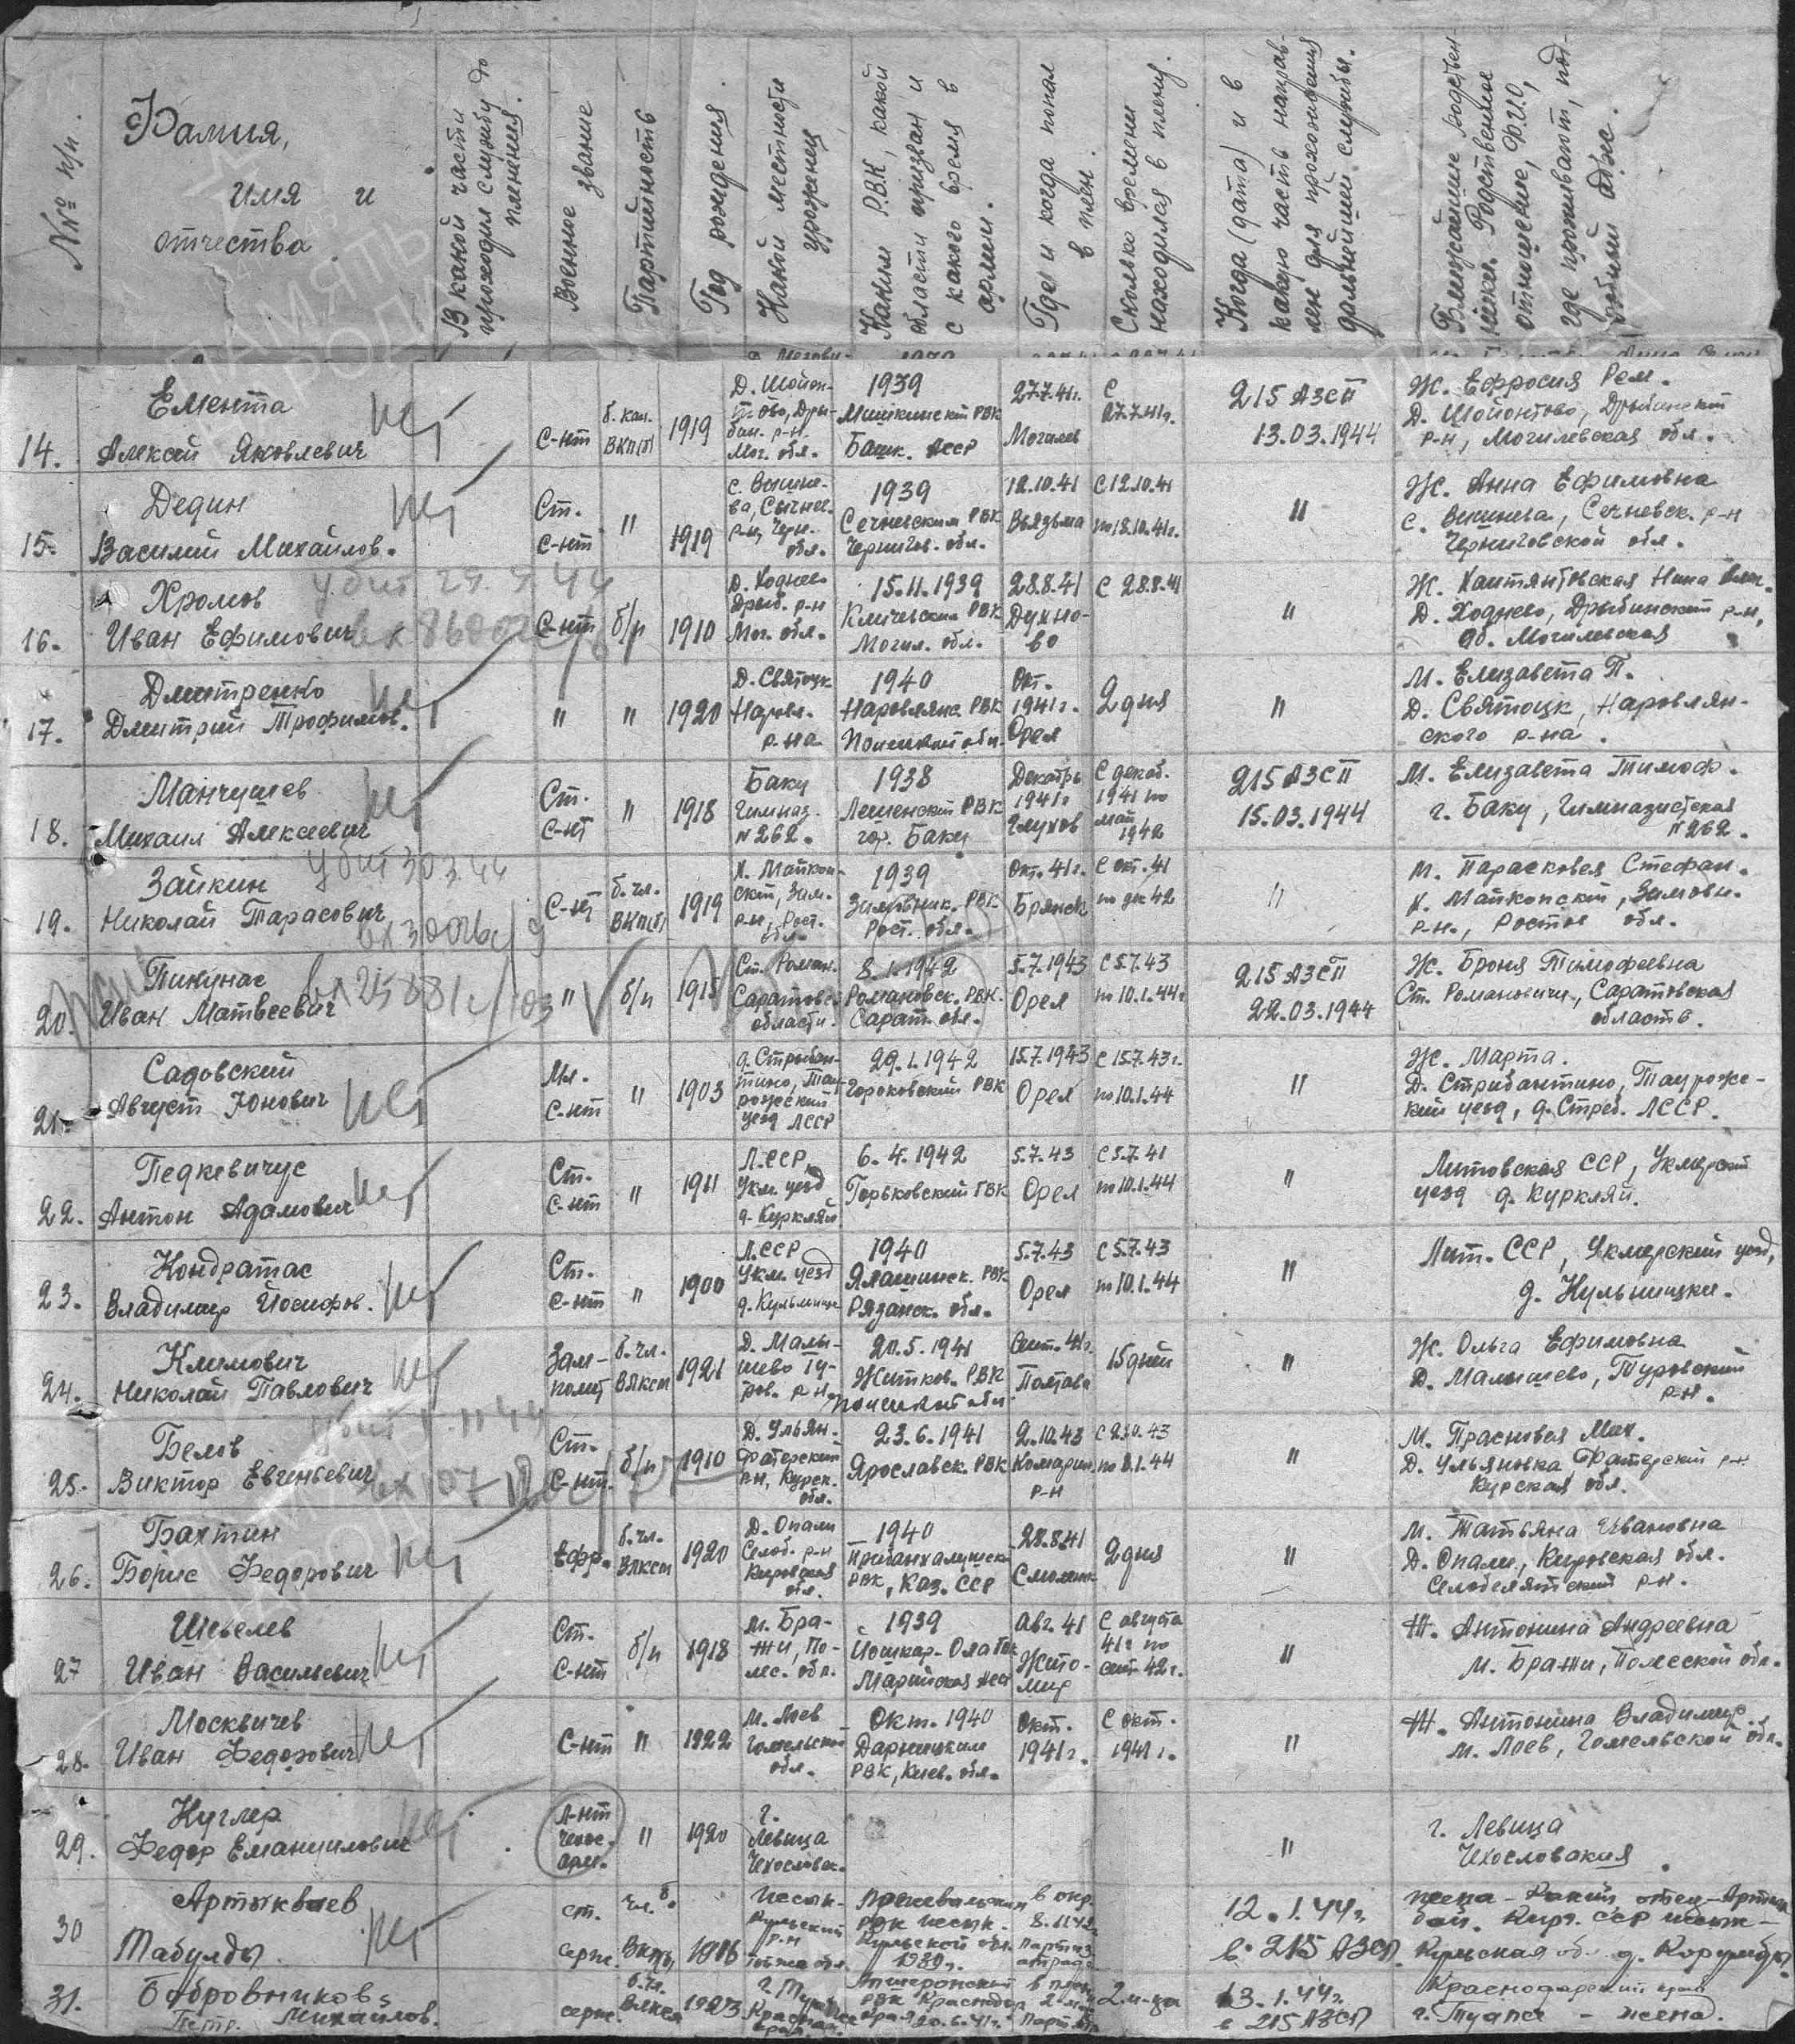 №№ п/п.
Фамилия,
имя и
отчества
В какой части
проходил службу до
пленения.
Военное звание
Партийность
Год рождения.
Какой местности
уроженец
Каким Р.В.К, какой
области призван и
с какого время в
армии.
Где и когда попал
в плен.
Сколько времени
находился в плену.
Когда (дата) и в
какую часть направ-
лен для прохождения
дальнейшей службы.
Ближайшие родствен-
ники. Родственное
отношение, Ф.И.О,
где проживают, под-
робный адрес.
14.
Емента
Алексей Яковлевич
нет
С-нт
б. кан.
ВКП(б)
1919
Д. Шойон-
тово, Дры-
бин. р-н
Мог. обл.
1939
Мишкинский РВК
Башк. АССР
27.7.41г.
Могилев
С
27.7.41г.
215 АЗСП
13.03.1944
Ж. Ефросия Рем.
Д. Шойонтово, Дрыбинский
р-н, Могилевская обл.
15.
Дедин
Василий Михайлов.
нет
Ст.
С-нт
"
1919
с. Вишне-
ва,
р-н, Черн.
обл.
1939
РВК
Чернигов. обл.
12.10.41
Вязьма
С 12.10.41
по 18.10.41г.
"
Ж. Анна Ефимовна
с. Вишнева, Сечневск. р-н
Черниговской обл.
16.
Хромов
Иван Ефимович
убит
С-нт
б/п
1910
Д. Ходнево
Дрыб. р-н
Мог. обл.
15.11.1939
Кличевским РВК
Могил. обл.
28.8.41
Духно-
во
С 28.8.41
"
Ж. Нина
Д. Ходнево, Дрыбинский р-н,
об. Могилевская
17.
Дмитренко
Дмитрий Трофимов.
нет
"
"
1920
Д. Святоцк
Наровл.
р-на
1940
Наровлянс. РВК
Полесской обл.
Окт.
1941г.
Орел
2 дня
"
М. Елизавета П.
Д. Святоцк, Наровлян-
ского р-на.
18.
Манчушев
Михаил Алексеевич
нет
Ст.
С-нт
"
1918
Баку
Гимназ.
№262.
1938
Лешенский РВК
гор. Баку
Декабрь
1941г
Глухов
С декаб.
1941 по
май
1942
215 АЗСП
15.03.1944
М. Елизавета Тимоф.
г. Баку, Гимназистская
№262.
19.
Зайкин
Николай Тарасович
убит 30.3.44
С-нт
б. чл.
ВКП(б)
1919
Х. Майкоп-
ский, Зим.
р-н, Рост.
обл.
1939
Зимовник. РВК
Рост. обл.
Окт. 41г.
Брянск
С окт. 41
по дек 42
"
М. Парасковея Стефан.
Х. Майкопский, Зимовн.
р-н., Ростов обл.
20.
Пикунас
Иван Матвеевич
"
б/п
1915
Ст. Роман.
Саратовс.
области.
8.1.1942
Романовск. РВК.
Сарат. обл.
5.7.1943
Орел
С 5.7.43
по 10.1.44г.
215 АЗСП
22.03.1944
Ж. Броня Тимофеевна
Ст. Романовичи, Саратовская
область.
21.
Садовский
Август Юнович
нет
Мл.
С-нт
"
1903
д. Стрибан-
тино, Тау-
рожский
уезд ЛССР
29.1.1942
Гороховский РВК
15.7.1943
Орел
С 15.7.43г.
по 10.1.44
"
Ж. Марта.
Д. Стрибантино, Таурож-
ский уезд, д. Стреб. ЛССР.
22.
Педкевичус
Антон Адамович
нет
Ст.
С-нт
"
1911
Л.ССР
Укм. уезд
д. Куркляй
6.4.1942
Горьковский ГВК
5.7.43
Орел
С 5.7.41
по 10.1.44
"
Литовская ССР, Укмерский
уезд д. Куркляй.
23.
Кондратас
Владимир Иосифов.
нет
Ст.
С-нт
"
1900
Л.ССР
Укм. уезд
1940
РВК
Рязанск. обл.
5.7.43
Орел
С 5.7.43
по 10.1.44
"
Лит. ССР, Укмерский уезд,
д. Кульницки.
24.
Климович
Николай Павлович
нет
Зам-
полит
б. чл.
ВЛКСМ
1921
Д. Малы-
шево Ту-
ров. р-на
20.5.1941
Житков. РВК
Полесской обл
Сент. 41г.
Полтава
15 дней
"
Ж. Ольга Ефимовна
Д. Малышево, Туровский
р-н.
25.
Белов
Виктор Евгеньевич
убит
Ст.
С-нт.
б/п
1910
Д. Ульян.
Фатерский
р-н, Курск.
обл.
23.6.1941
Ярославск. РВК
2.10.43
Комарин.
р-н
С 2.10.43
по 8.1.44
"
М. Прасковья Мих.
Д. Ульяновка Фатерский р-н
Курская обл.
26.
Бахтин
Борис Федорович
нет
Ефр.
б. чл.
ВЛКСМ
1920
Д. Опали
Селоб. р-н
Кировская
обл.
1940
РВК, Каз. ССР
28.8.41
Смоленск
2 дня
"
М. Татьяна Ивановна
Д. Опали, Кировская обл.
р-н.
27
Шевелев
Иван Васильевич
нет
Ст.
С-нт
б/п
1918
м. Бра-
жи, По-
лес. обл.
1939
Йошкар-Ола
Марийская АССР
Авг. 41
Жито-
мир
С августа
41г по
сент 42г.
"
Ж. Антонина Андреевна
м. Бражи, Полесской обл.
28.
Москвичев
Иван Федорович
нет
С-нт
"
1922
м. Лоев
Гомельской
обл.
Окт. 1940
Дарницким
РВК, Киев. обл.
Окт.
1941г.
С окт.
1941г.
"
Ж. Антонина Владимир.
м. Лоев, Гомельской обл.
29.
Куглер
Федор Емануилович
нет
Л-нт
чехос.
арм.
"
1920
г.
Левица
Чехословак.
"
г. Левица
Чехословакия.
30
Артыкваев
Табулды
нет
ст.
серж.
чл.
ВКП(б)
Иссык-
Кульский
р-н
Пржевальским
РВК Иссык-
Кульской обл.
1939г.
в окр.
12.1.44г.
в 215 АЗСП.
жена – отец –
Кирг. ССР Иссык-
Кульская об.
31.
Бобровников
Петр. Михайлов.
серж.
б. чл.
ВЛКСМ
1923
РВК
края 20.6.41г.
2 м-ца
13.1.44г.
в 215 АЗСП
Краснодарский край
г. Туапсе – жена.